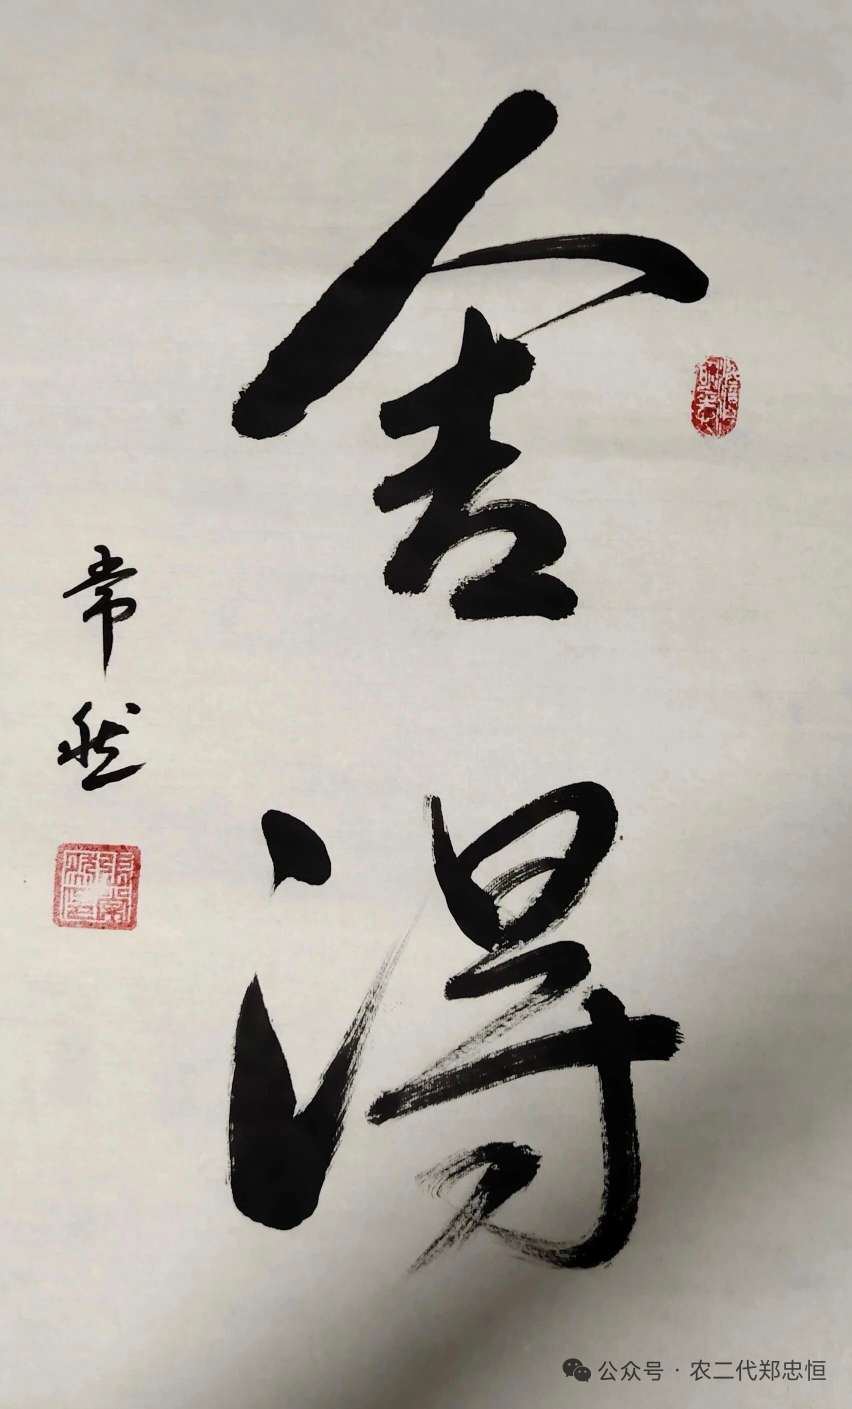 舍得
常然
公众号·农二代郑忠恒